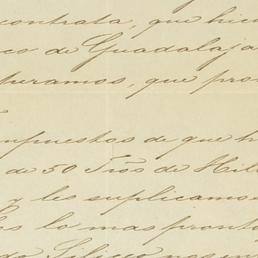 contrata, que hic
co de Guadalaja
juramos, que pro
mpuestos de que h
de 50 Tros de Hil
y les suplicamos
los lo mas pronto